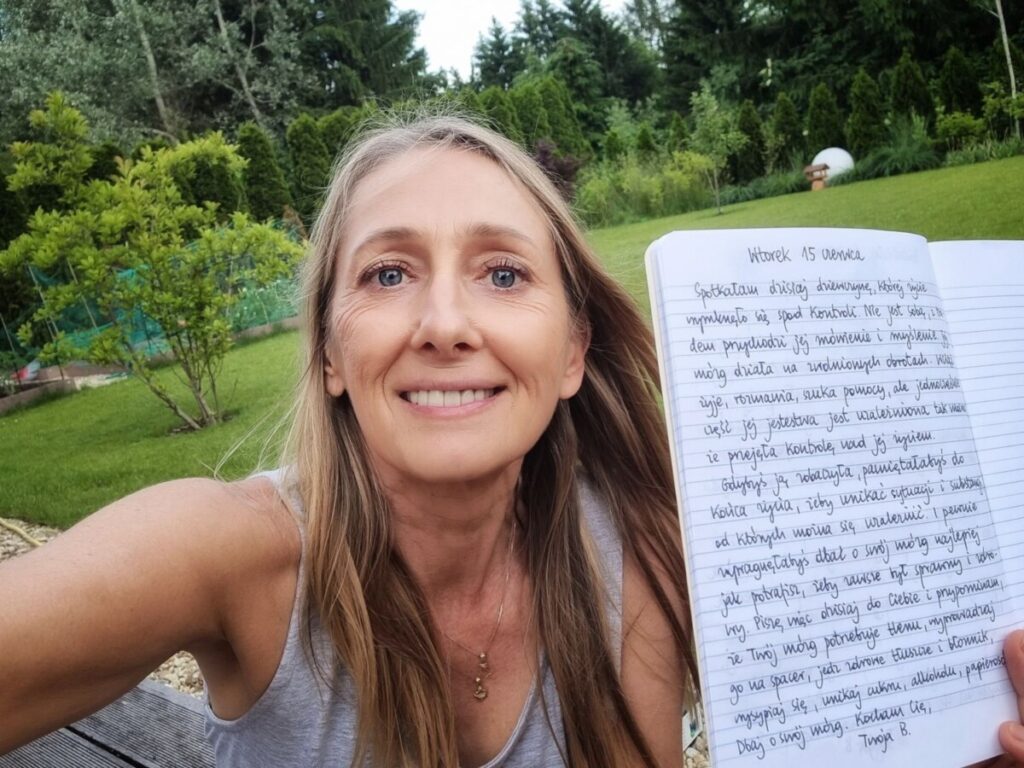 Wtorek 15 czerwca
Spotkałam dzisiaj dziewczynę, której życie
wymknęło się spod kontroli. Nie jest sobą, z
dem przychodzi jej mówienie i myślenie, jej
mózg działa na zwolnionych obrotach. Walczy
żyje, rozmawia, szuka pomocy, ale jednocześnie
część jej jestestwa jest uzależniona, tak
że przejęła kontrolę nad jej życiem.
Gdybyś ją zobaczyła, pamiętałabyś do
końca życia, żeby unikać sytuacji i substancji
od których można się uzależnić. I pewnie
zapragnęłabyś dbać o swój mózg najlepiej
jak potrafisz, żeby zawsze był sprawny i zdro-
wy. Piszę więc dzisiaj do Ciebie i przypominam,
że Twój mózg potrzebuje tlenu, wyprowadzaj
go na spacer, jedz zdrowe tłuszcze i błonnik,
wysypiaj się, unikaj cukru, alkoholu, papierosów
Dbaj o swój mózg. Kocham Cię,
Twoja B.